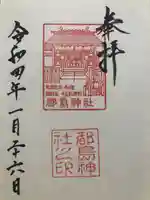 奉拝
都島神社
都島神社之印
令和四年一月二十六日